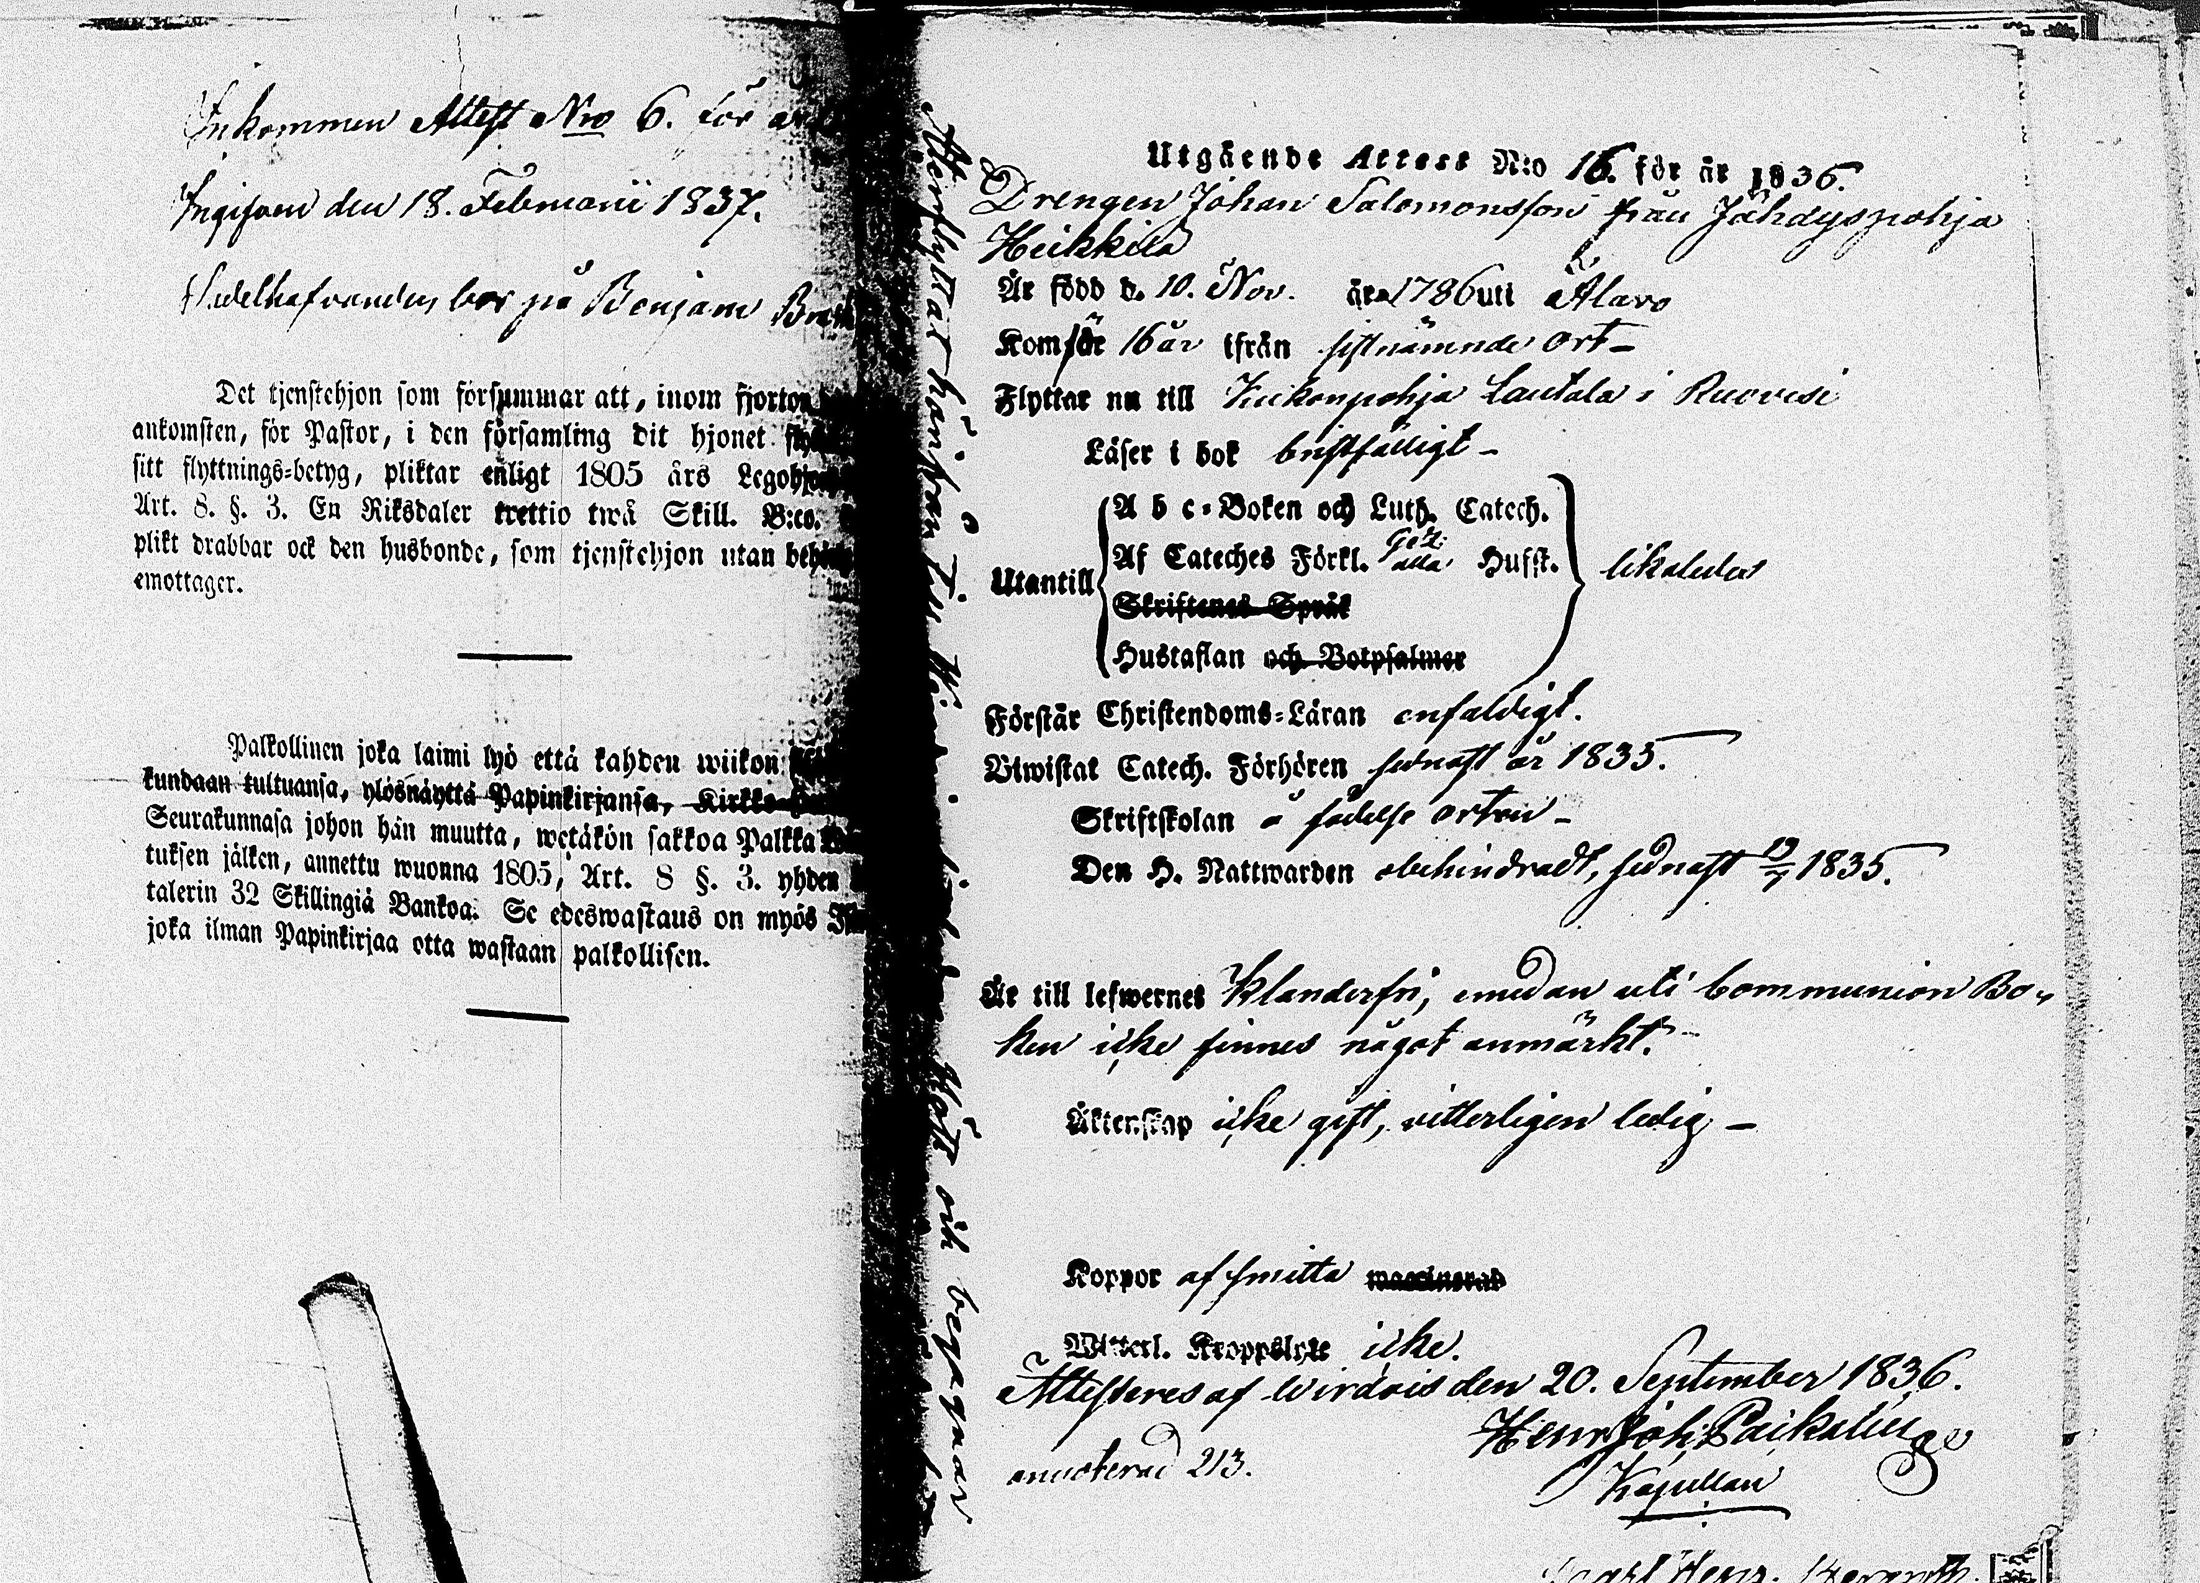 Inkommen Attest Nro 6. för
Ingifven den 18. Februarii 1837.
bor på Benjam
Det tjenstehjon som försummar att, inom fjorton
ankomsten, för Pastor, i den församling dit hjonet
sitt flyttnings-betyg, pliktar enligt 1805 års
Art. 8. §. 3. En Riksdaler trettio twå Skill. B:co.
plikt drabbar ock den husbonde, som tjenstehjon utan
emottager.
Palkollinen joka laimi lyö että kahden wiikon
kundaan tultuansa, ylösnäyttä Papinkirjansa,
Seurakunnasa johon hän muutta, wetäkön sakkoa Palkka
tuksen jälken, annettu wuonna 1805, Art. 8 §. 3. yhden
talerin 32 Skillingiä Bankoa. Se edeswastaus on myös
joka ilman Papinkirjaa otta wastaan palkollisen.
Återflyttar härifrån till och
Utgående Attest N:o 16. för år 1836.
Drengen Johan Salomonsson från Jähdyspohja
Heikkilä
Är född d. 10. Nov. år 1786 uti Alavo
Kom för 16 år ifrån sistnämnde ort —
Flyttar nu till Kuikonpohja Lautala i Ruovesi
Läser i bok bristfälligt —
Utantill
A b c-Boken och Luth. Catech.
Af Cateches Förkl. alla Hufst.
Skriftenes Språk
Hustaflan och Botpsalmer
likaledes
Förstår Christendoms-Läran enfaldigt.
Biwistat Catech. Förhören sednast år 1835.
Skriftskolan å födelse orten —
Den H. Nattwarden obehindradt, sednast 19/7 1835.
Är till lefwernet Klanderfri, emedan uti Communion Bo-
ken icke finnes något anmärkt.
Äktenskap icke gift, vitterligen ledig —
Koppor af smitta waccinerad
Witterl. Kroppslyte icke.
Attesteres af Wirdois den 20. September 1836.
Henr Joh:
annoterad 213.
Kapellan